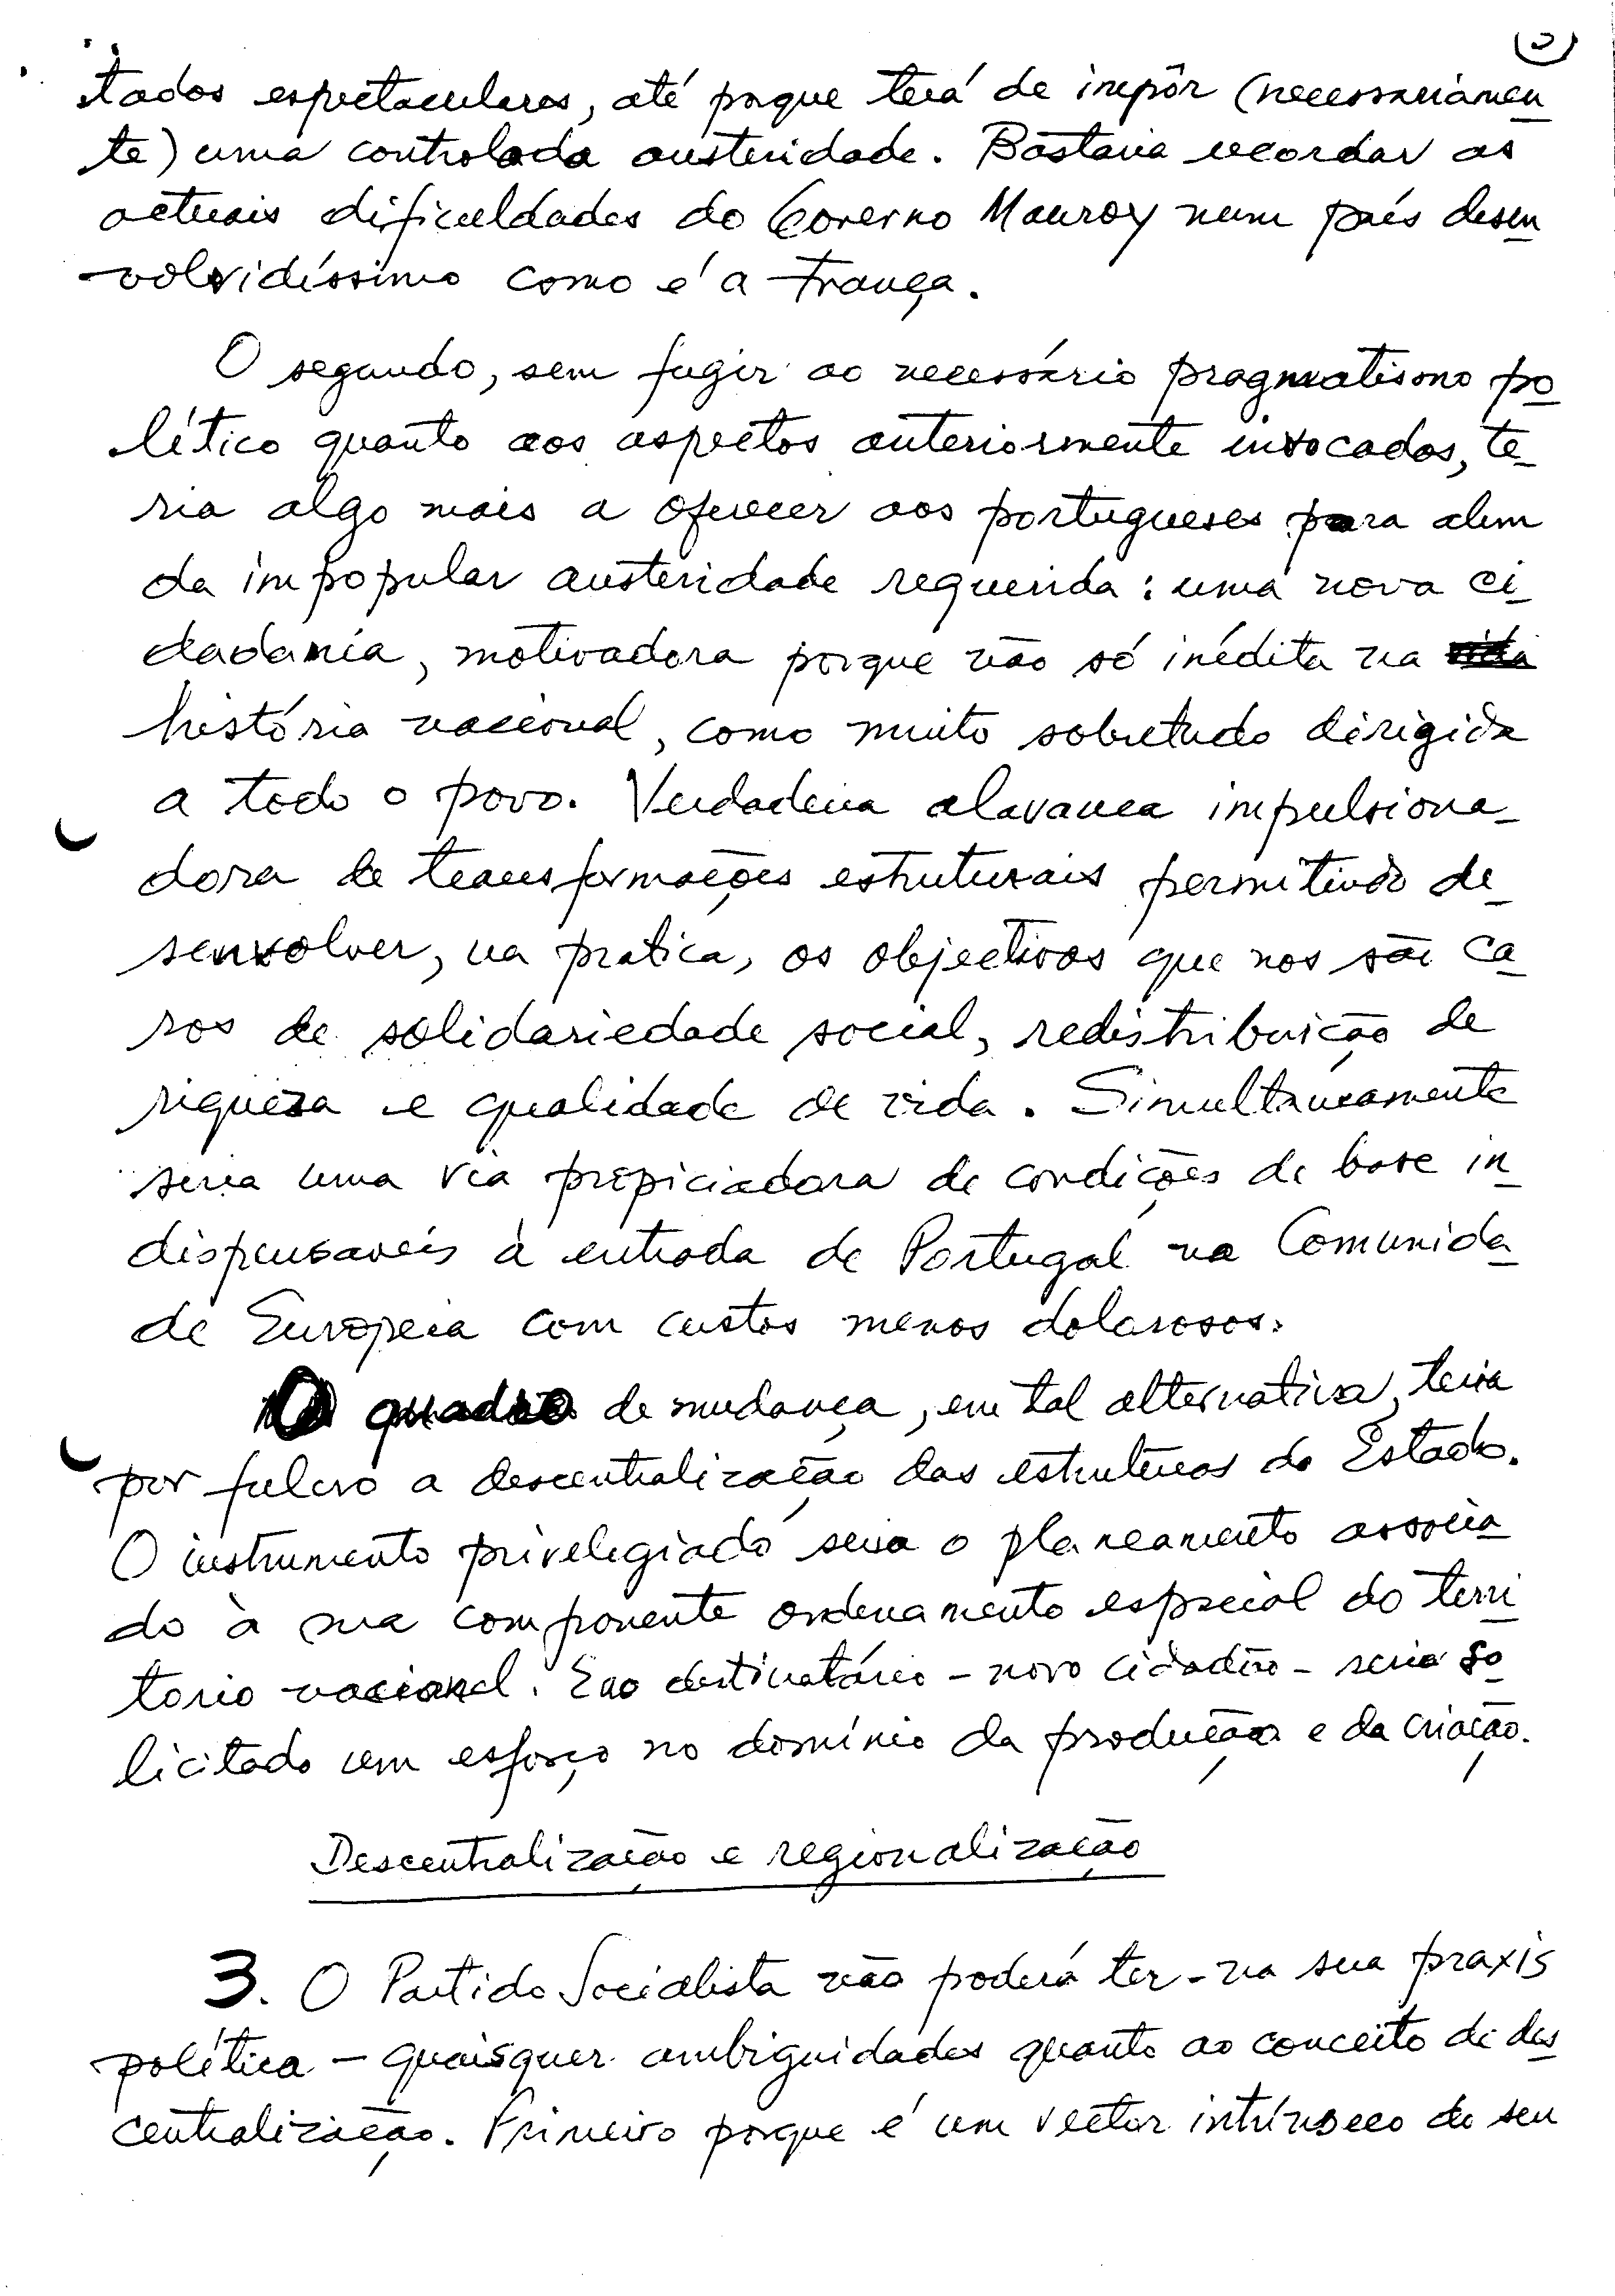 tados espectaculares, até porque terá de impôr (necessariamen
te) uma controlada austeridade. Bastaria recordar as
actuais dificuldades do Governo Mauroy num país desen
volvidíssimo como é a França.
O segundo, sem fugir ao necessário pragmatismo po
lítico quanto aos aspectos anteriormente invocados, te-
ria algo mais a oferecer aos portugueses para alem
da impopular austeridade requerida: uma nova ci
dadania, motivadora porque não só inédita na
história nacional, como muito sobretudo dirigida
a todo o povo. Verdadeira alavanca impulsiona-
dora de transformações estruturais permitindo de-
senvolver, na pratica, os objectivos que nos são ca
ros de solidariedade social, redistribuição de
riqueza e qualidade de vida. Simultaneamente
seria uma via propiciadora de condições de base in
dispensaveis à entrada de Portugal na Comunida
de Europeia com custos menos dolorosos.
O quadro de mudança, em tal alternativa, teria
por fulcro a descentralização das estruturas do Estado.
O instrumento privelegiado seria o planeamento associa
do à sua componente ordenamento espacial do terri
torio nacional. E ao destinatário - novo cidadão - seria so
licitado um esforço no domínio da produção e da criação.
Descentralização e regionalização
3. O Partido Socialista não poderá ter - na sua praxis
política - quaisquer ambiguidades quanto ao conceito de des
centralização. Primeiro porque é um vector intrínseco do seu